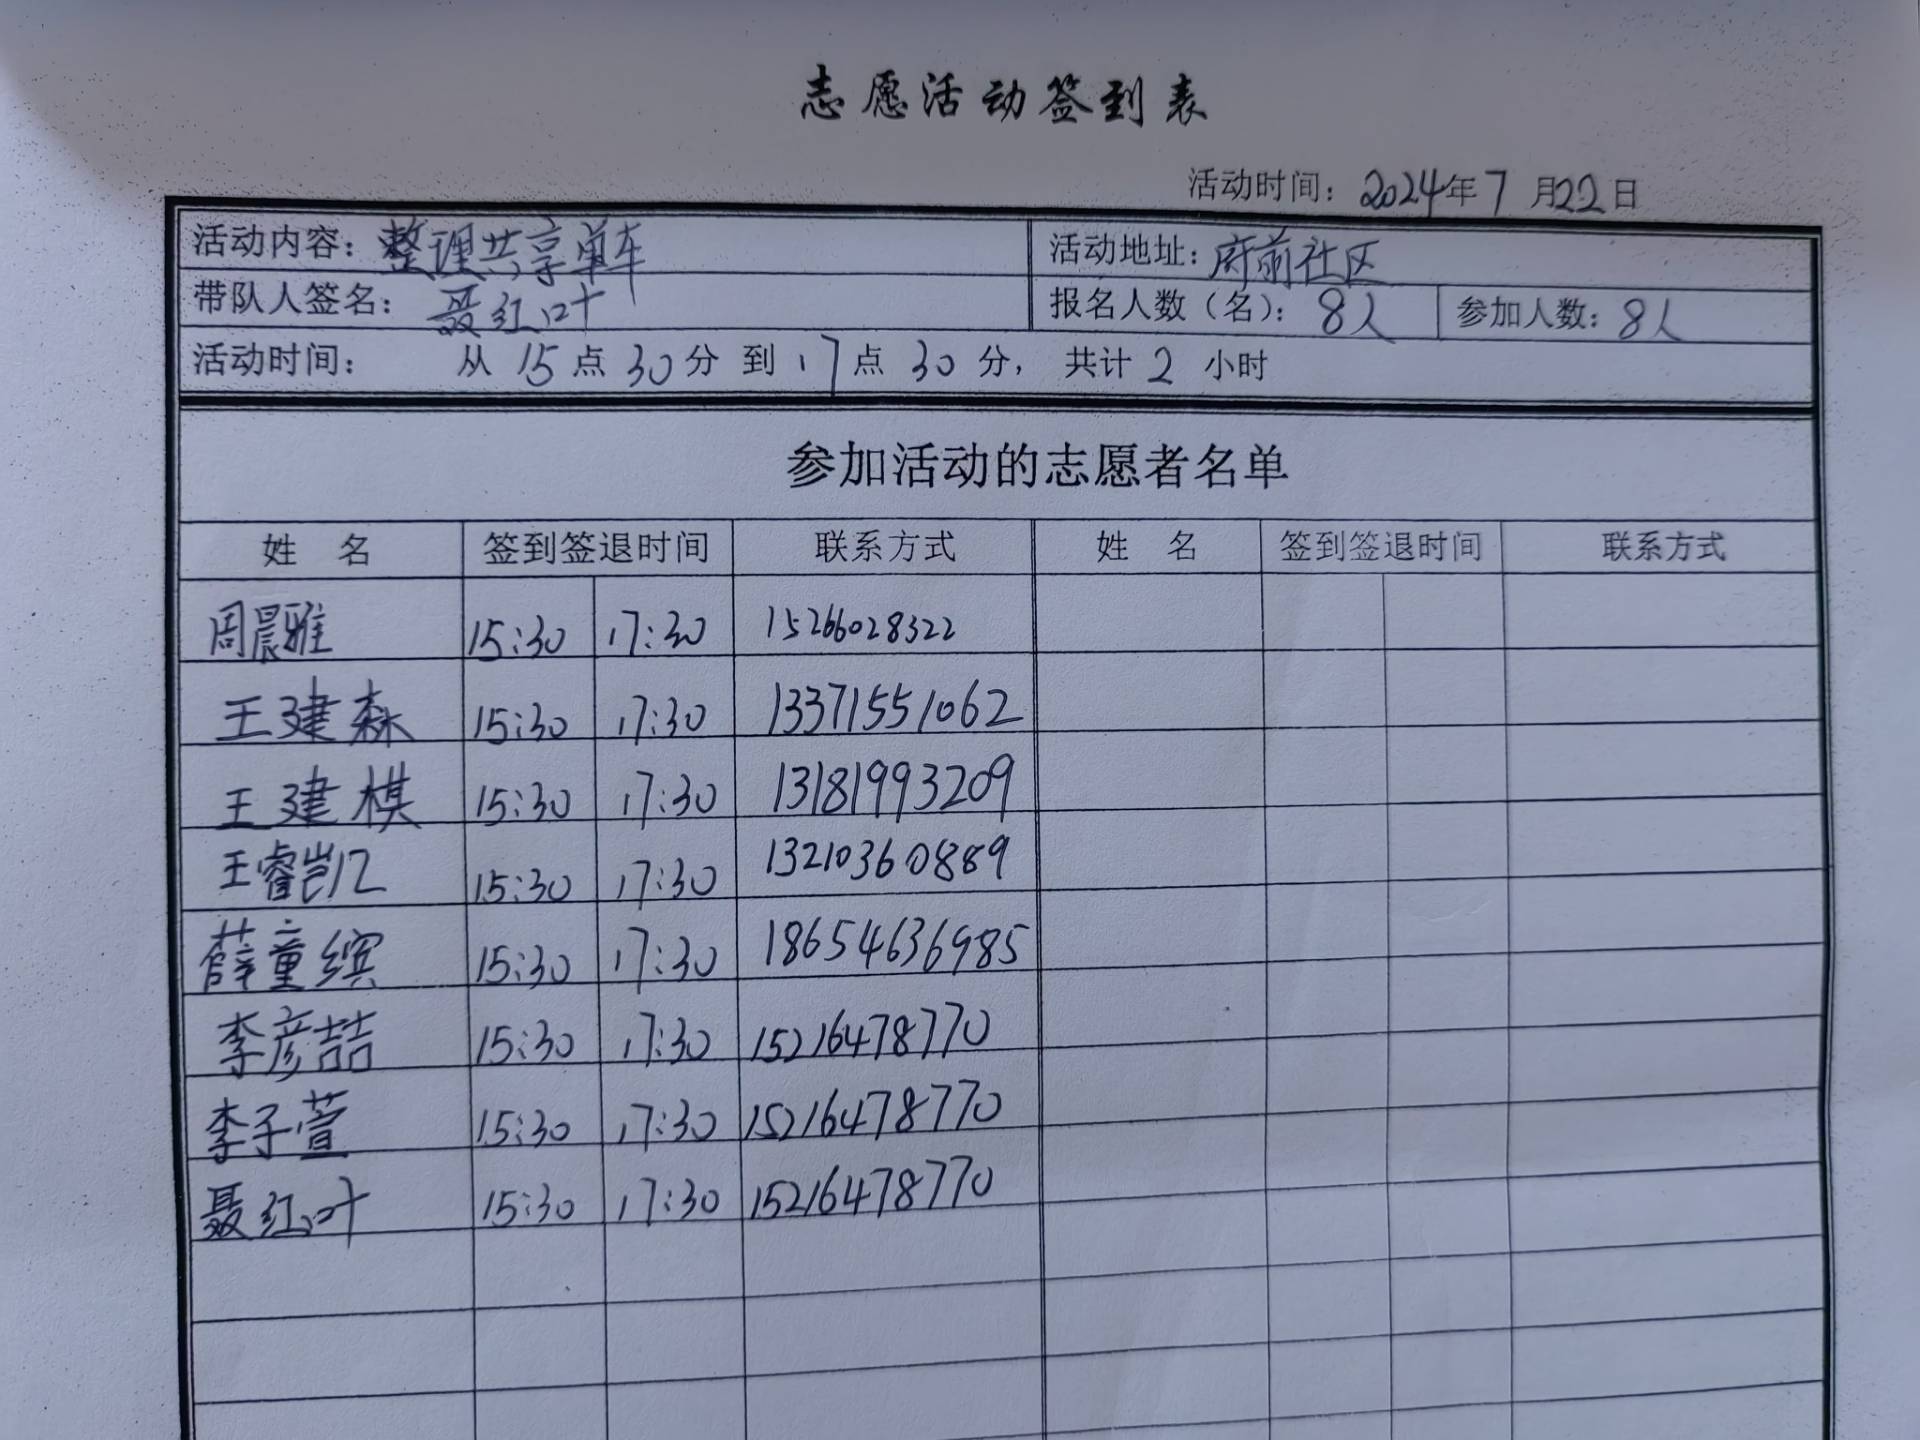 志愿活动签到表
活动时间：2024年7月22日
活动内容：整理共享单车 活动地址：府前社区
带队人签名：聂红叶 报名人数（名）：8人 参加人数：8人
活动时间： 从15点30分到17点30分， 共计2小时
参加活动的志愿者名单
姓 名 签到签退时间 联系方式 姓 名 签到签退时间 联系方式
周晨雅 15:30 17:30 15266028322
王建森 15:30 17:30 13371551062
王建棋 15:30 17:30 13181993209
王睿岂凡 15:30 17:30 13210360889
薛童缤 15:30 17:30 18654636985
李彦喆 15:30 17:30 15216478770
李子萱 15:30 17:30 15216478770
聂红叶 15:30 17:30 15216478770